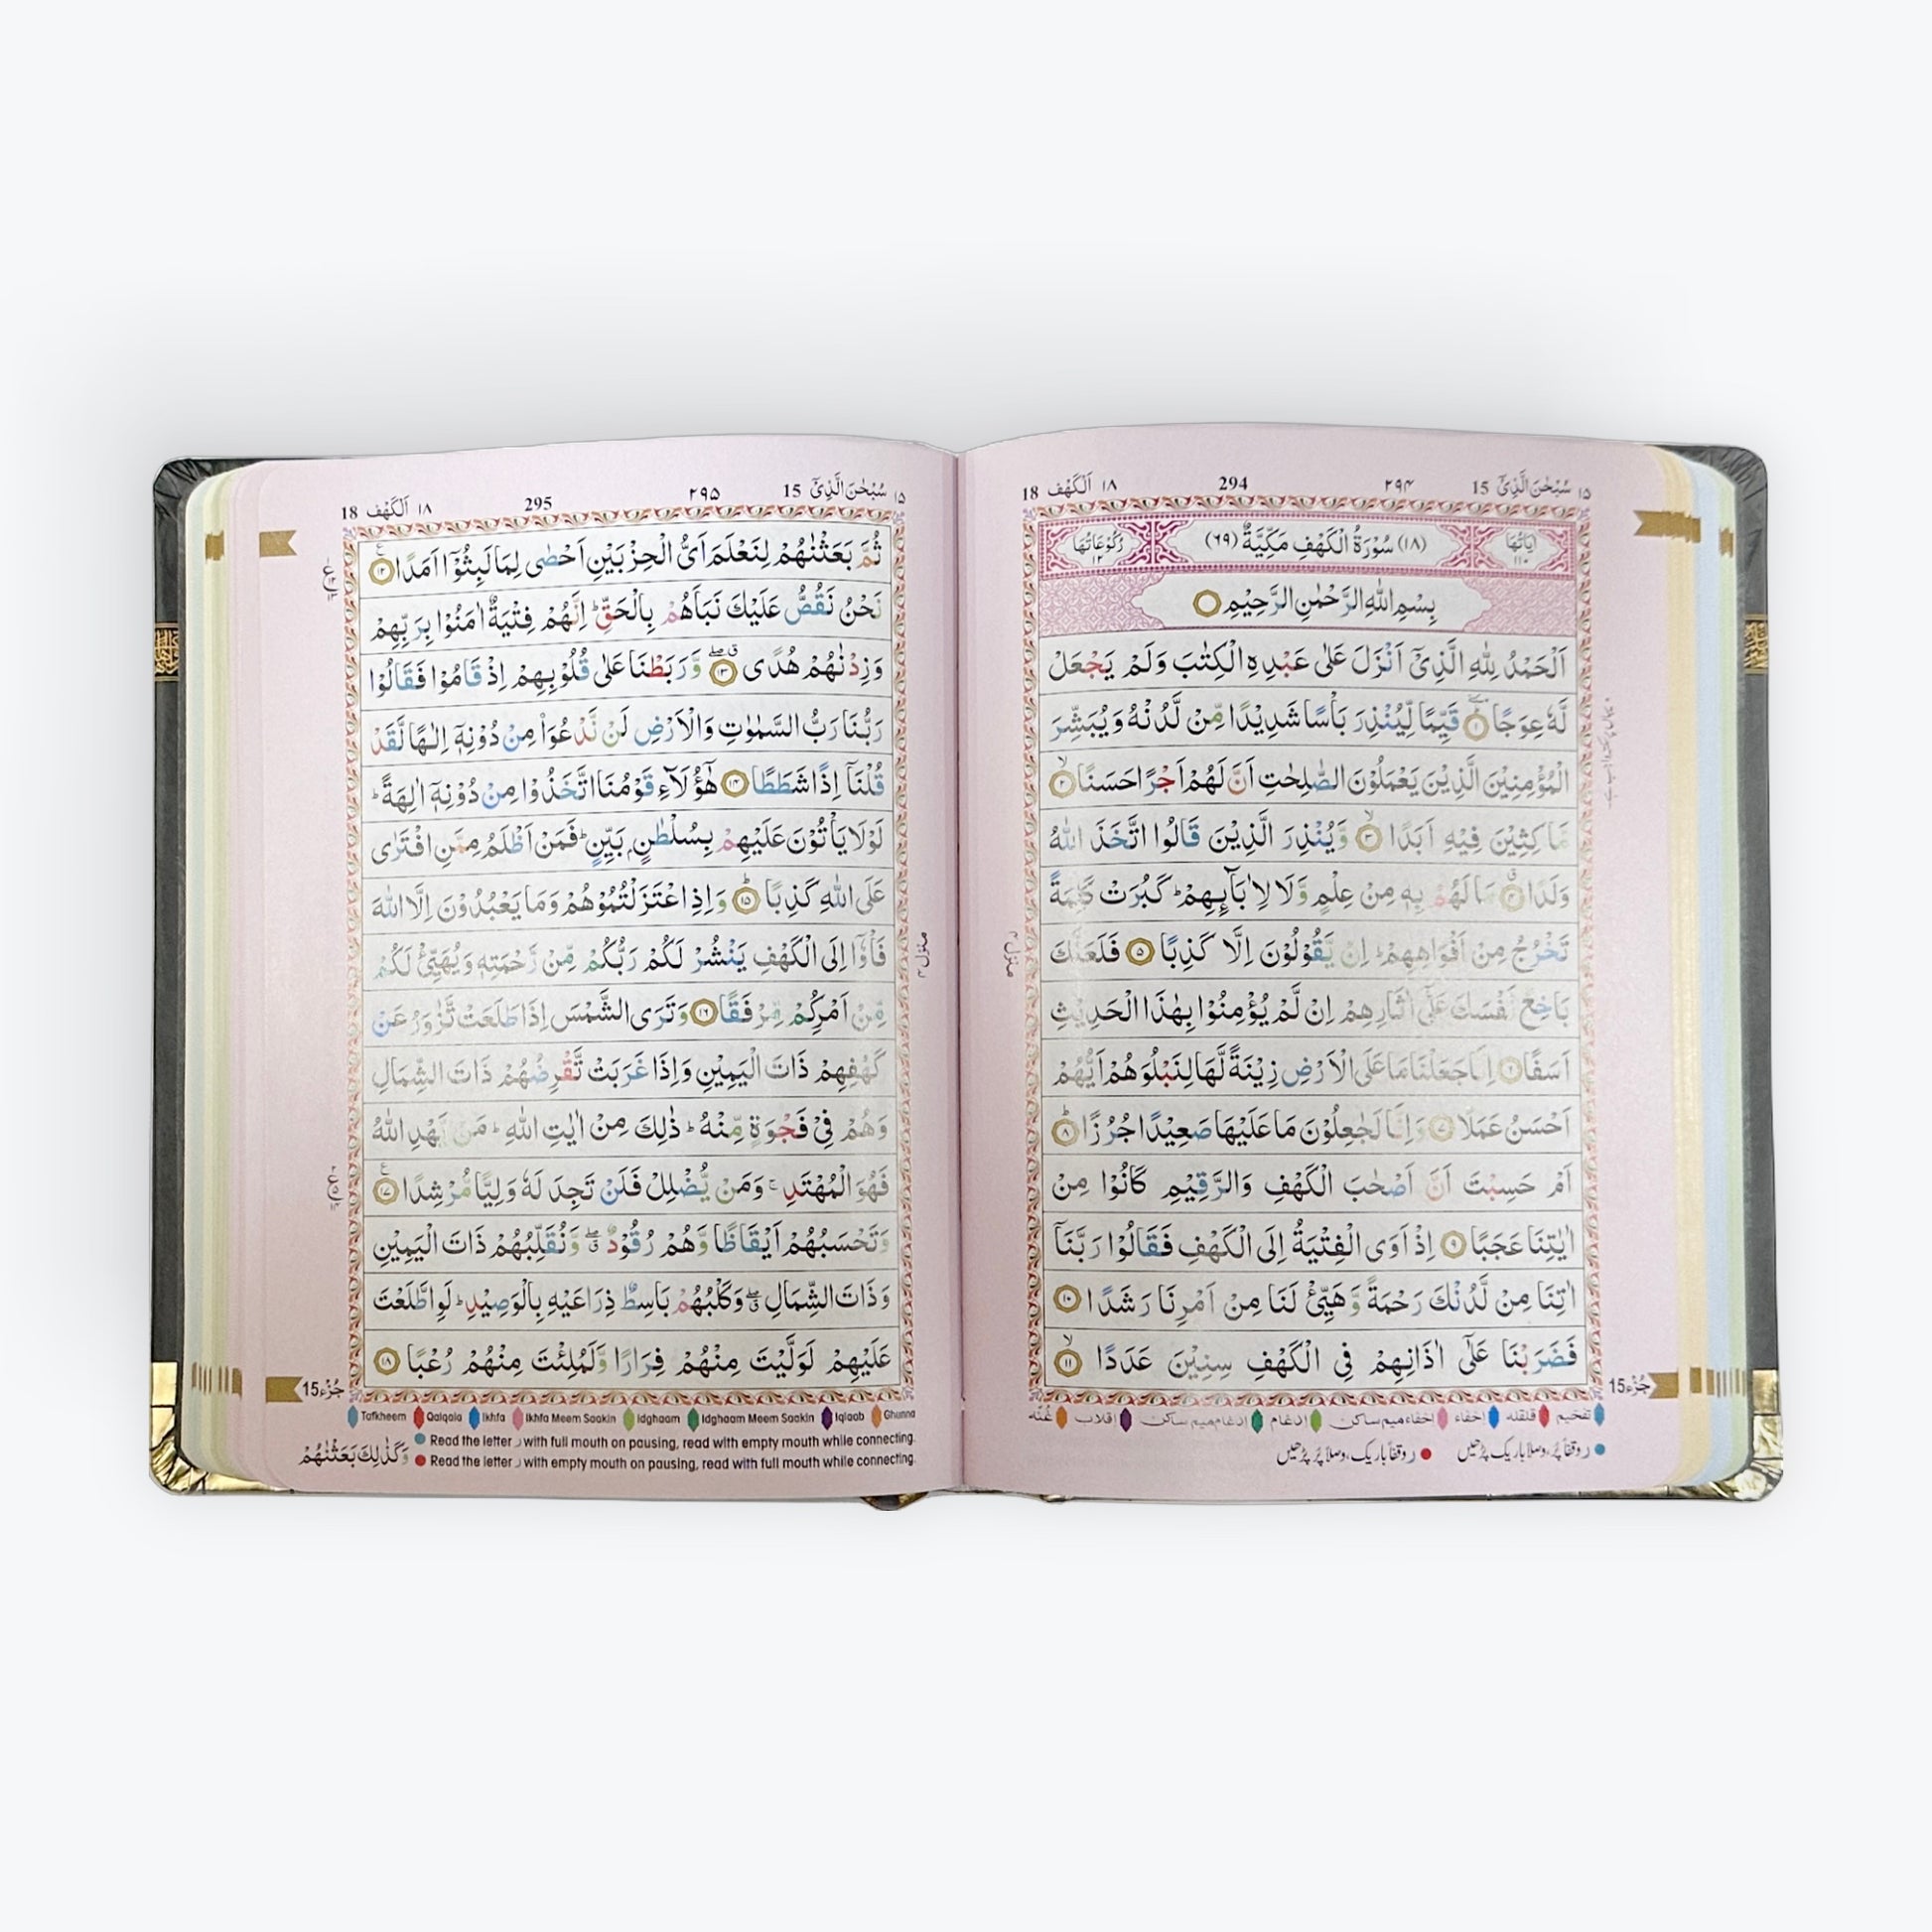 ١٥ سُبْحٰنَ الَّذِیْۤ 15 ٢٩۴ 294 ١٨ اَلْكَهْف 18
اٰيَاتُهَا ١١٠ (١٨) سُوْرَةُ الْكَهْفِ مَكِّيَّةٌ (٦٩) رُكُوْعَاتُهَا ١٢
بِسْمِ اللّٰهِ الرَّحْمٰنِ الرَّحِيْمِ
اَلْحَمْدُ لِلّٰهِ الَّذِیْۤ اَنْزَلَ عَلٰى عَبْدِهِ الْكِتٰبَ وَلَمْ يَجْعَلْ
لَّهٗ عِوَجًا ١ قَيِّمًا لِّيُنْذِرَ بَاْسًا شَدِيْدًا مِّنْ لَّدُنْهُ وَيُبَشِّرَ
الْمُؤْمِنِيْنَ الَّذِيْنَ يَعْمَلُوْنَ الصّٰلِحٰتِ اَنَّ لَهُمْ اَجْرًا حَسَنًا ٢
مَّاكِثِيْنَ فِيْهِ اَبَدًا ٣ وَّيُنْذِرَ الَّذِيْنَ قَالُوا اتَّخَذَ اللّٰهُ
وَلَدًا ٤ مَا لَهُمْ بِهٖ مِنْ عِلْمٍ وَّلَا لِاٰبَآئِهِمْ ؕ كَبُرَتْ كَلِمَةً
تَخْرُجُ مِنْ اَفْوَاهِهِمْ ؕ اِنْ يَّقُوْلُوْنَ اِلَّا كَذِبًا ٥ فَلَعَلَّكَ
بَاخِعٌ نَّفْسَكَ عَلٰۤى اٰثَارِهِمْ اِنْ لَّمْ يُؤْمِنُوْا بِهٰذَا الْحَدِيْثِ
اَسَفًا ٦ اِنَّا جَعَلْنَا مَا عَلَى الْاَرْضِ زِيْنَةً لَّهَا لِنَبْلُوَهُمْ اَيُّهُمْ
اَحْسَنُ عَمَلًا ٧ وَاِنَّا لَجٰعِلُوْنَ مَا عَلَيْهَا صَعِيْدًا جُرُزًا ؕ ٨
اَمْ حَسِبْتَ اَنَّ اَصْحٰبَ الْكَهْفِ وَالرَّقِيْمِ كَانُوْا مِنْ
اٰيٰتِنَا عَجَبًا ٩ اِذْ اَوَى الْفِتْيَةُ اِلَى الْكَهْفِ فَقَالُوْا رَبَّنَاۤ
اٰتِنَا مِنْ لَّدُنْكَ رَحْمَةً وَّهَيِّئْ لَنَا مِنْ اَمْرِنَا رَشَدًا ١٠
فَضَرَبْنَا عَلٰۤى اٰذَانِهِمْ فِى الْكَهْفِ سِنِيْنَ عَدَدًا ١١
منزل ٤
جُزْء 15
تفخیم قلقله اخفاء اخفاء میم ساکن ادغام ادغام میم ساکن اقلاب غُنّه
ر وقفاً پُر، وصلاً باریک پڑھیں ر وقفاً باریک، وصلاً پُر پڑھیں
١٥ سُبْحٰنَ الَّذِیْۤ 15 ٢٩۵ 295 ١٨ اَلْكَهْف 18
ثُمَّ بَعَثْنٰهُمْ لِنَعْلَمَ اَىُّ الْحِزْبَيْنِ اَحْصٰى لِمَا لَبِثُوْۤا اَمَدًا ١٢
نَحْنُ نَقُصُّ عَلَيْكَ نَبَاَهُمْ بِالْحَقِّ ؕ اِنَّهُمْ فِتْيَةٌ اٰمَنُوْا بِرَبِّهِمْ
وَزِدْنٰهُمْ هُدًى ١٣ وَّرَبَطْنَا عَلٰى قُلُوْبِهِمْ اِذْ قَامُوْا فَقَالُوْا
رَبُّنَا رَبُّ السَّمٰوٰتِ وَالْاَرْضِ لَنْ نَّدْعُوَا۟ مِنْ دُوْنِهٖۤ اِلٰهًا لَّقَدْ
قُلْنَاۤ اِذًا شَطَطًا ١٤ هٰۤؤُلَآءِ قَوْمُنَا اتَّخَذُوْا مِنْ دُوْنِهٖۤ اٰلِهَةً ؕ
لَوْلَا يَاْتُوْنَ عَلَيْهِمْ بِسُلْطٰنٍۢ بَيِّنٍ ؕ فَمَنْ اَظْلَمُ مِمَّنِ افْتَرٰى
عَلَى اللّٰهِ كَذِبًا ؕ ١٥ وَاِذِ اعْتَزَلْتُمُوْهُمْ وَمَا يَعْبُدُوْنَ اِلَّا اللّٰهَ
فَاْوٗۤا اِلَى الْكَهْفِ يَنْشُرْ لَكُمْ رَبُّكُمْ مِّنْ رَّحْمَتِهٖ وَيُهَيِّئْ لَكُمْ
مِّنْ اَمْرِكُمْ مِّرْفَقًا ١٦ وَتَرَى الشَّمْسَ اِذَا طَلَعَتْ تَّزٰوَرُ عَنْ
كَهْفِهِمْ ذَاتَ الْيَمِيْنِ وَاِذَا غَرَبَتْ تَّقْرِضُهُمْ ذَاتَ الشِّمَالِ
وَهُمْ فِىْ فَجْوَةٍ مِّنْهُ ؕ ذٰلِكَ مِنْ اٰيٰتِ اللّٰهِ ؕ مَنْ يَّهْدِ اللّٰهُ
فَهُوَ الْمُهْتَدِ ۚ وَمَنْ يُّضْلِلْ فَلَنْ تَجِدَ لَهٗ وَلِيًّا مُّرْشِدًا ١٧
وَتَحْسَبُهُمْ اَيْقَاظًا وَّهُمْ رُقُوْدٌ ۖ وَّنُقَلِّبُهُمْ ذَاتَ الْيَمِيْنِ
وَذَاتَ الشِّمَالِ ۖ وَكَلْبُهُمْ بَاسِطٌ ذِرَاعَيْهِ بِالْوَصِيْدِ ؕ لَوِ اطَّلَعْتَ
عَلَيْهِمْ لَوَلَّيْتَ مِنْهُمْ فِرَارًا وَّلَمُلِئْتَ مِنْهُمْ رُعْبًا ١٨
منزل ٤
جُزْء 15
Tafkheem Qalqala Ikhfa Ikhfa Meem Saakin Idghaam Idghaam Meem Saakin Iqlaab Ghunna
Read the letter ر with full mouth on pausing, read with empty mouth while connecting.
Read the letter ر with empty mouth on pausing, read with full mouth while connecting.
وَكَذٰلِكَ بَعَثْنٰهُمْ